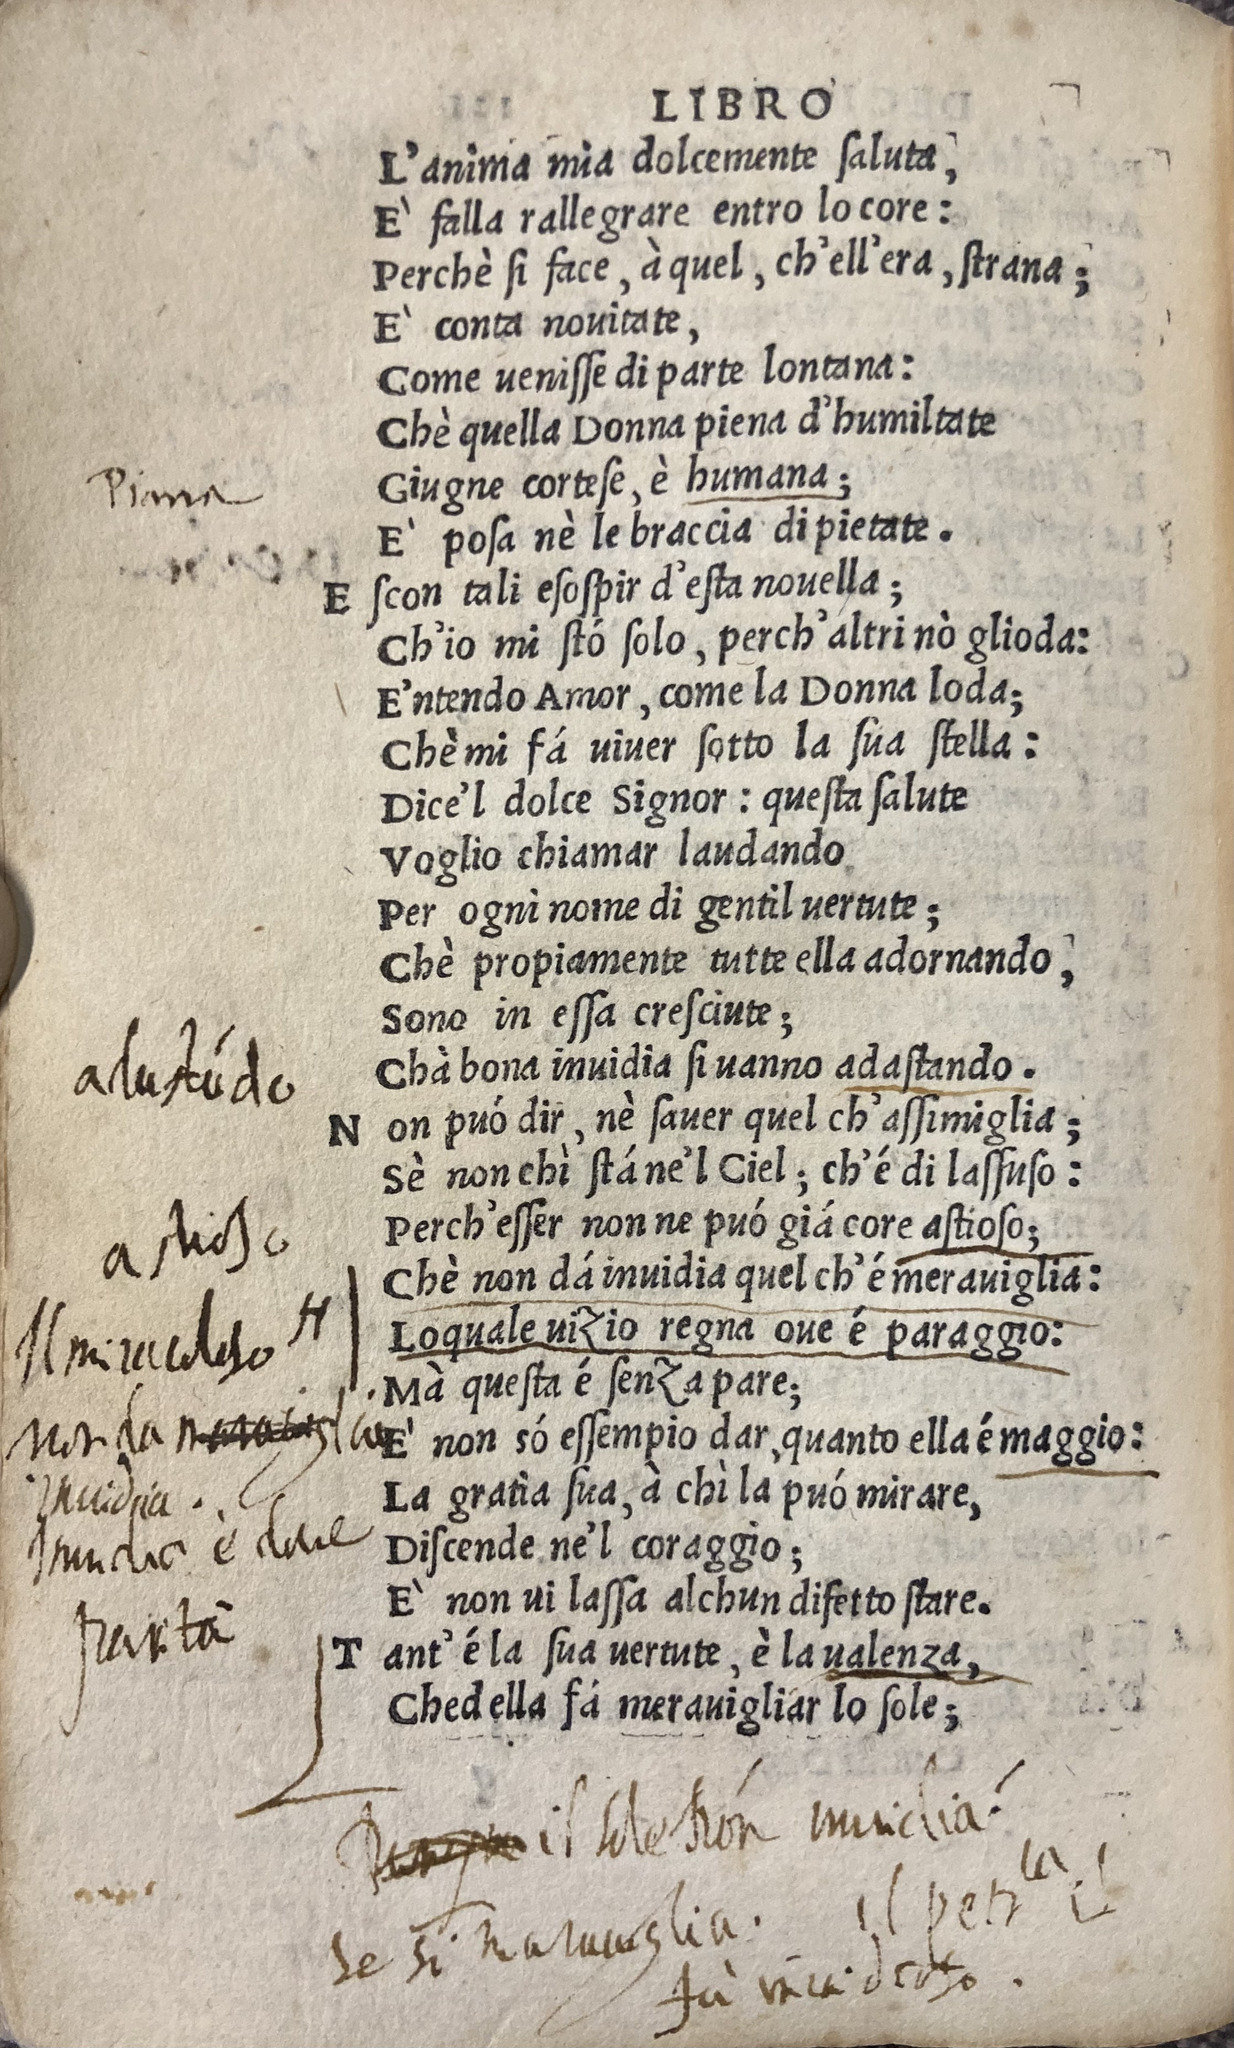 LIBRO
L'anima mia dolcemente ſaluta,
E' falla rallegrare entro lo core:
Perchè ſi face, à quel, ch'ell'era, ſtrana;
E' conta nouitate,
Come ueniſſe di parte lontana:
Chè quella Donna piena d'humiltate
Piana
Giugne corteſe, è humana;
E' poſa nè le braccia di pietate.
E ſcon tali eſoſpir d'eſta nouella;
Ch'io mi ſtó ſolo, perch'altri nò glioda:
E'ntendo Amor, come la Donna loda;
Chè mi fá uiuer ſotto la ſua ſtella:
Dice'l dolce Signor: queſta ſalute
Voglio chiamar laudando
Per ogni nome di gentil uertute;
Chè propiamente tutte ella adornando,
Sono in eſſa creſciute;
Chà bona inuidia ſi uanno adaſtando.
N on puó dir, nè ſauer quel ch'aſſimiglia;
Sè non chì ſtá ne'l Ciel; ch'é di laſſuſo:
aſtioſo
Perch'eſſer non ne puó giá core aſtioſo;
Chè non dá inuidia quel ch'é merauiglia:
Il miracoloso
Loquale uizio regna oue é paraggio:
Mà queſta é ſenza pare;
non da
E' non só eſſempio dar, quanto ella é maggio:
inuidia.
La gratia ſua, à chì la puó mirare,
è doue
Diſcende ne'l coraggio;
E' non ui laſſa alchun difetto ſtare.
parità
T ant' é la ſua uertute, è la ualenza,
Ched ella fá merauigliar lo ſole;
il ſole inuidia
se si marauiglia. il
fà